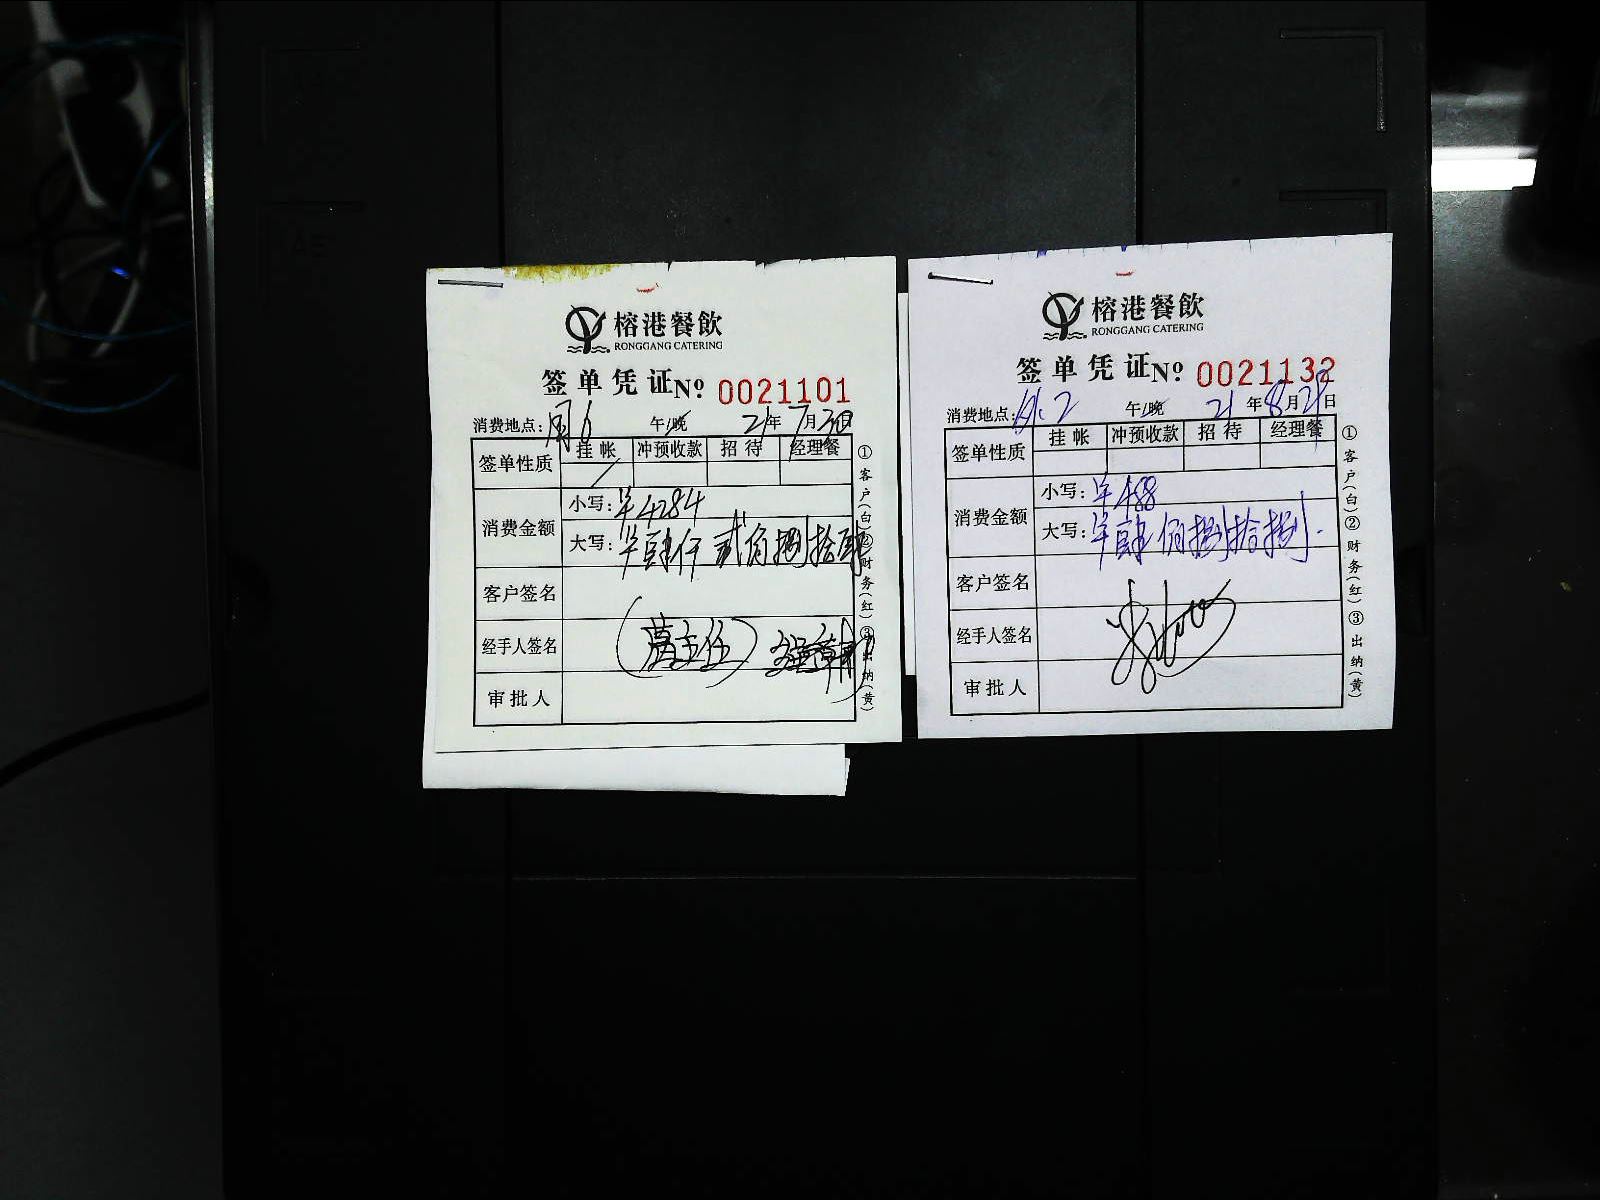 榕港餐飲
RONGGANG CATERING
签单凭证 Nº 0021101
消费地点: 周6 午/晚 21年7月30日
签单性质 挂帐 冲预收款 招待 经理餐
消费金额
小写: 半4284
大写: 半肆仟贰佰捌拾肆
客户签名
经手人签名 (葛主任)
审批人
①客户(白)②财务(红)③出纳(黄)
榕港餐飲
RONGGANG CATERING
签单凭证 Nº 0021132
消费地点: 午/晚 21年8月日
签单性质 挂帐 冲预收款 招待 经理餐
消费金额
小写: 半488
大写: 半肆佰捌拾捌.
客户签名
经手人签名
审批人
①客户(白)②财务(红)③出纳(黄)